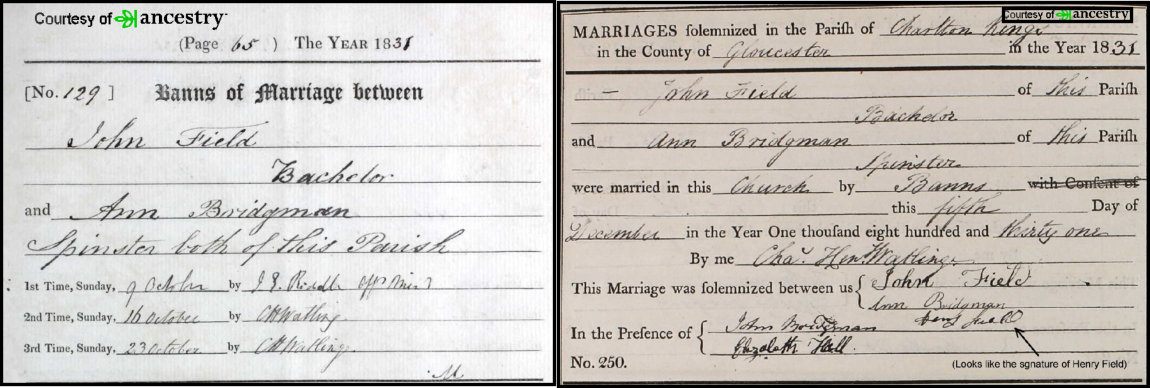 Courtesy of ancestry
(Page 65) The Year 1831
[No. 129] Banns of Marriage between
John Field
Bachelor
and Ann Bridgman
Spinster both of this Parish
1st Time, Sunday, 9 October by J. E. Riddle
2nd Time, Sunday, 16 October by CHWatling
3rd Time, Sunday, 23 October by CHWatling
Courtesy of ancestry
MARRIAGES solemnized in the Parish of Charlton Kings
in the County of Gloucester in the Year 1831
John Field of this Parish
Bachelor
and Ann Bridgman of this Parish
Spinster
were married in this Church by Banns with Consent of
this fifth Day of
December in the Year One thousand eight hundred and thirty one
By me Chas. Heny. Watling
This Marriage was solemnized between us { John Field
Ann Bridgman
In the Presence of { John Bridgman
Elizabeth Hall
No. 250.
(Looks like the sgnature of Henry Field)